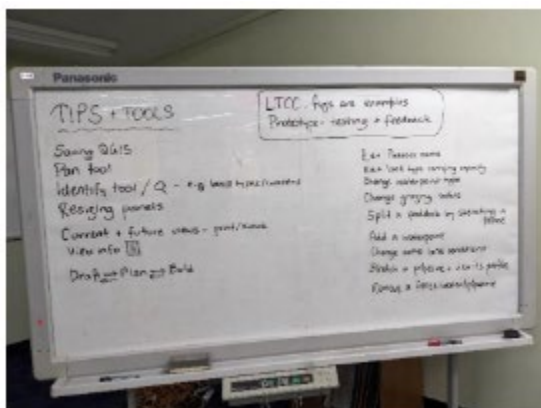 Panasonic
TIPS + TOOLS
LTCC figs are examples
Prototype - testing + feedback
Saving QGIS
Pan tool
Identify tool / Q - e.g. land types/waters
Resizing panels
Current + future views -
View info
Draft Plan Build
Edit Paddock name
Edit land type carrying capacity
Change waterpoint type
Change grazing radius
Split a paddock by sketching a
Add a waterpoint
Change some land conditions
Sketch a pipeline + view its profile
Remove a fence/waterpt/pipeline